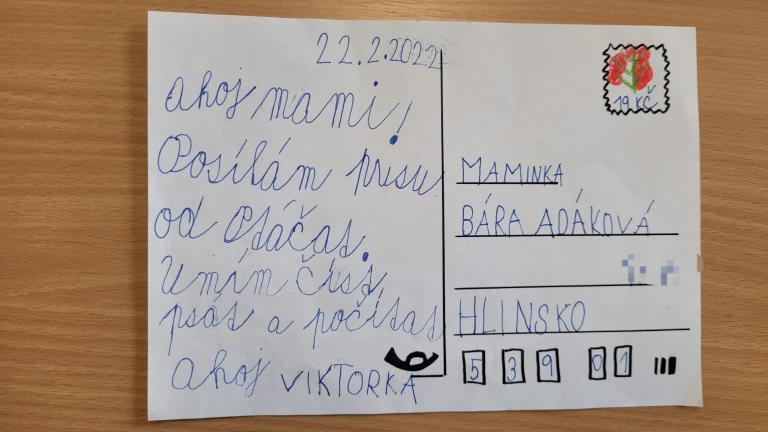 22.2.2022
ahoj mami!
Posílám prisu
od Ptáčat.
Umím číst,
psát a počítat
ahoj VIKTORKA
19 KČ
MAMINKA
BÁRA ADÁKOVÁ
HLINSKO
539 01